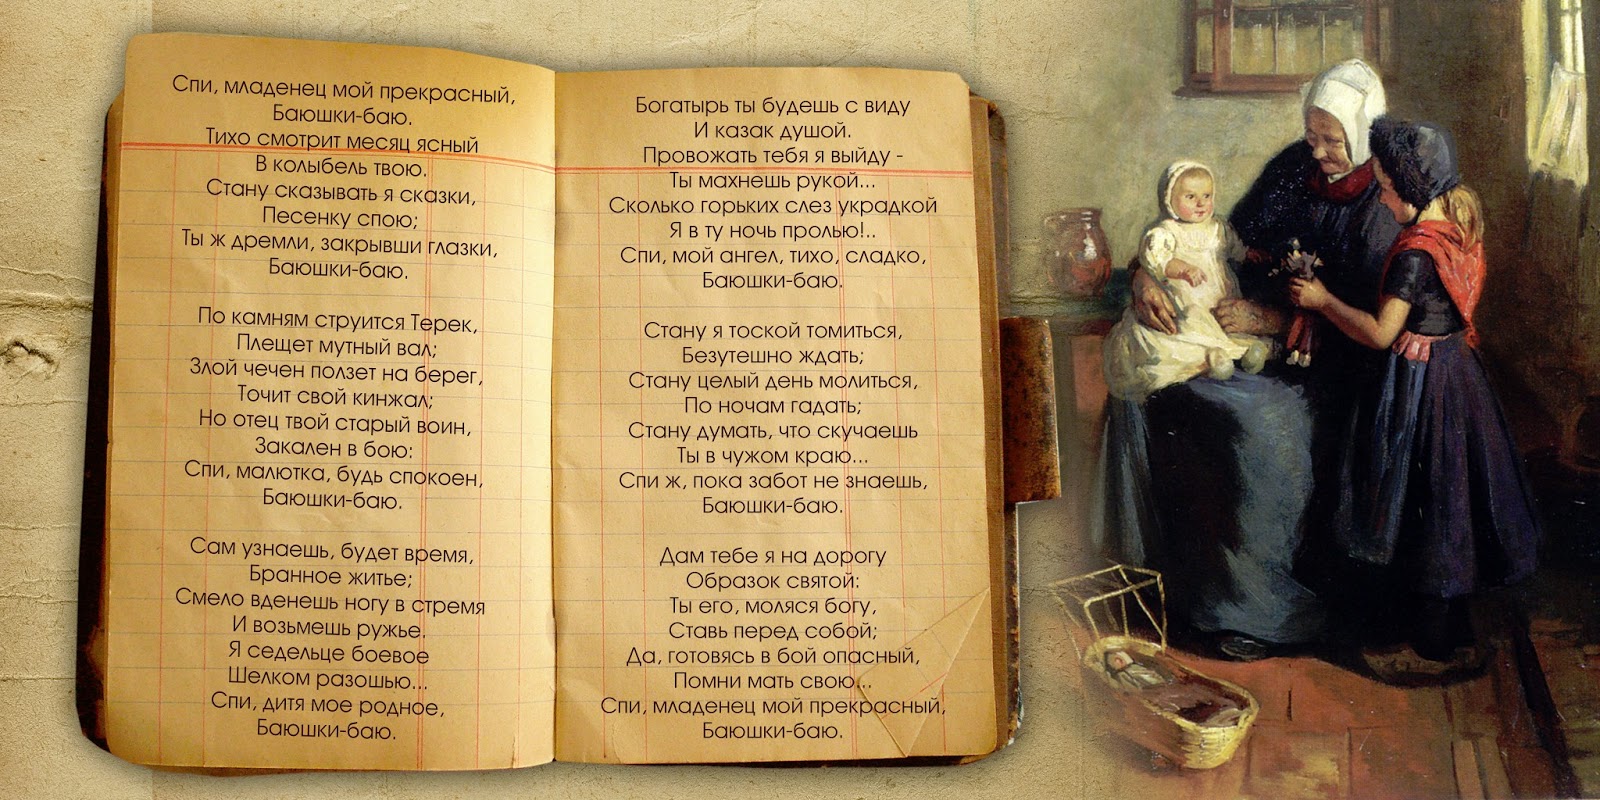 Спи, младенец мой прекрасный,
Баюшки-баю.
Тихо смотрит месяц ясный
В колыбель твою.
Стану сказывать я сказки,
Песенку спою;
Ты ж дремли, закрывши глазки,
Баюшки-баю.
По камням струится Терек,
Плещет мутный вал;
Злой чечен ползет на берег,
Точит свой кинжал;
Но отец твой старый воин,
Закален в бою:
Спи, малютка, будь спокоен,
Баюшки-баю.
Сам узнаешь, будет время,
Бранное житье;
Смело вденешь ногу в стремя
И возьмешь ружье.
Я седельце боевое
Шелком разошью...
Спи, дитя мое родное,
Баюшки-баю.
Богатырь ты будешь с виду
И казак душой.
Провожать тебя я выйду -
Ты махнешь рукой...
Сколько горьких слез украдкой
Я в ту ночь пролью!..
Спи, мой ангел, тихо, сладко,
Баюшки-баю.
Стану я тоской томиться,
Безутешно ждать;
Стану целый день молиться,
По ночам гадать;
Стану думать, что скучаешь
Ты в чужом краю...
Спи ж, пока забот не знаешь,
Баюшки-баю.
Дам тебе я на дорогу
Образок святой:
Ты его, моляся богу,
Ставь перед собой;
Да, готовясь в бой опасный,
Помни мать свою...
Спи, младенец мой прекрасный,
Баюшки-баю.